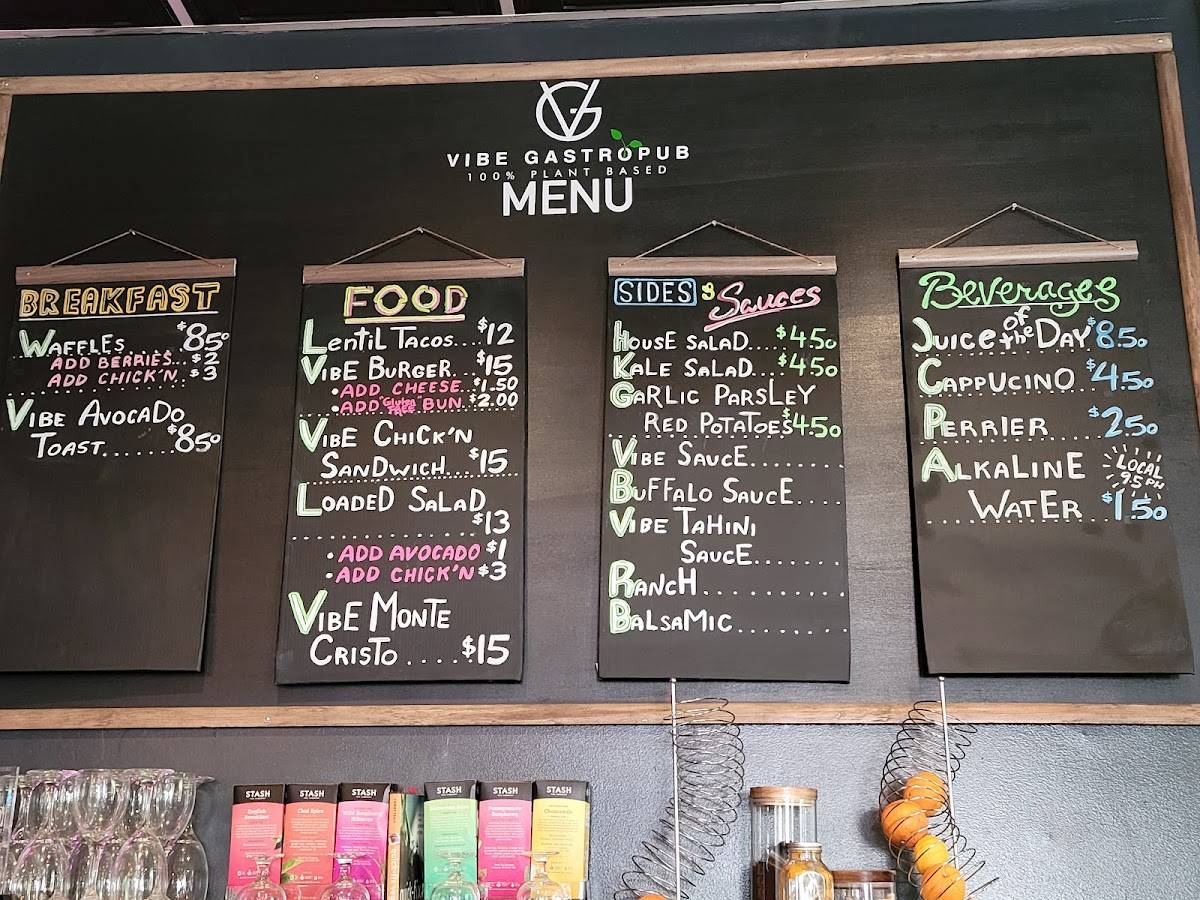 VG
VIBE GASTROPUB
100% PLANT BASED
MENU
BREAKFAST
WAFFLES... $8.50
ADD BERRIES... $2
ADD CHICK'N.. $3
VIBE AVOCADO
TOAST....... $8.50
FOOD
LENTIL TACOS... $12
VIBE BURGER... $15
• ADD CHEESE... $1.50
• ADD Gluten FREE BUN $2.00
VIBE CHICK'N
SANDWICH... $15
LOADED SALAD
$13
• ADD AVOCADO $1
• ADD CHICK'N $3
VIBE MONTE
CRISTO.... $15
SIDES & Sauces
HOUSE SALAD... $4.50
KALE SALAD... $4.50
GARLIC PARSLEY
RED POTATOES $4.50
VIBE SAUCE.......
BUFFALO SAUCE....
VIBE TAHINI
SAUCE.......
RANCH..........
BALSAMIC........
Beverages
JUICE of the DAY $8.50
CAPPUCINO. $4.50
PERRIER $2.50
ALKALINE LOCAL 9.5 PH
WATER $1.50
STASH
English Breakfast
STASH
Chai Spice
STASH
Wild Raspberry Hibiscus
STASH
STASH
Pomegranate Raspberry
STASH
Chamomile